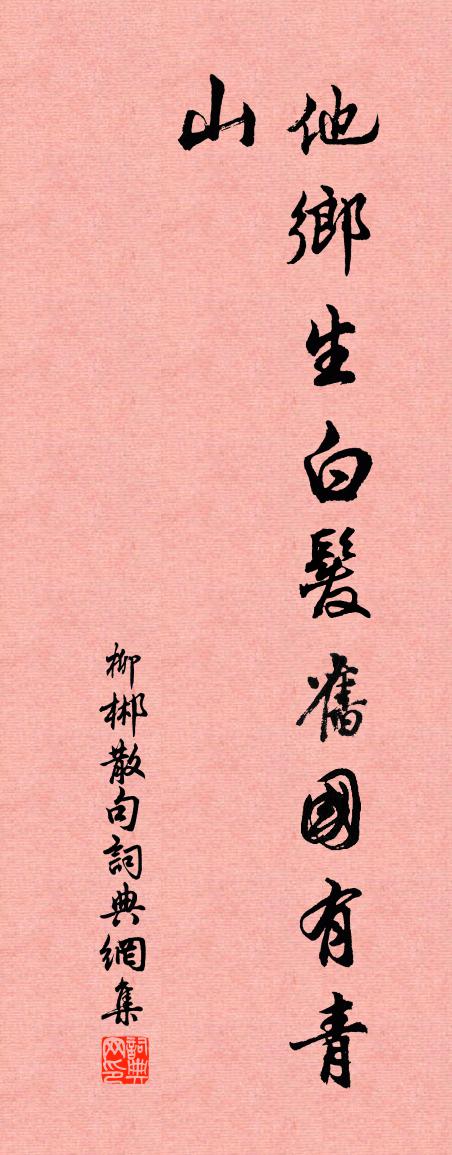 他鄉生白髮舊國有青
山
柳郴散句詞典網集
詞典网印